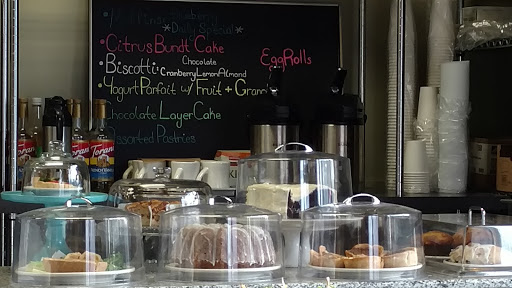 *Daily Special*
• Citrus Bundt Cake
Chocolate
EggRolls
• Biscotti: Cranberry Lemon Almond
• Yogurt Parfait w/ Fruit + Grano
Chocolate Layer Cake
Assorted Pastries
Torani
Torani